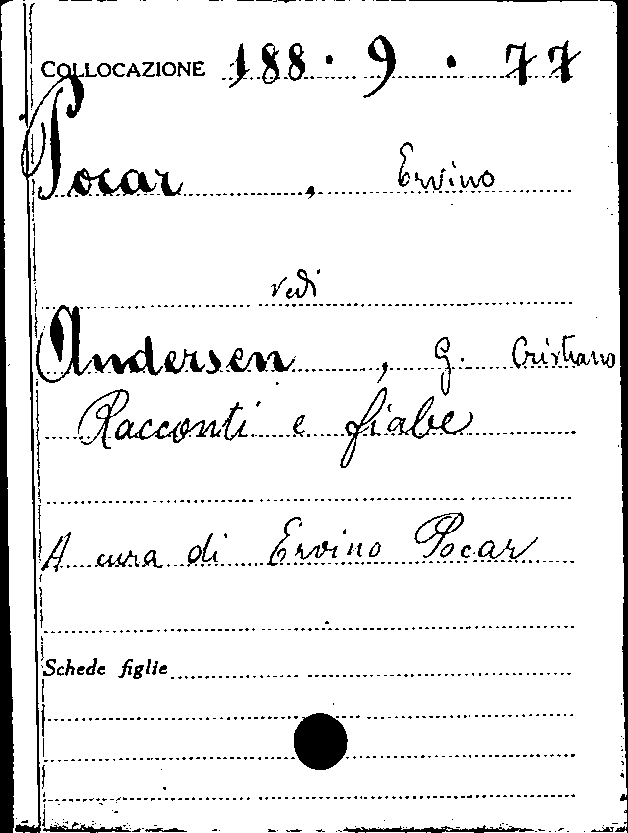 COLLOCAZIONE 188 · 9 · 77
Pocar , Ervino
vedi
Andersen , G. Cristiano
Racconti e fiabe
A cura di Ervino Pocar
Schede figlie